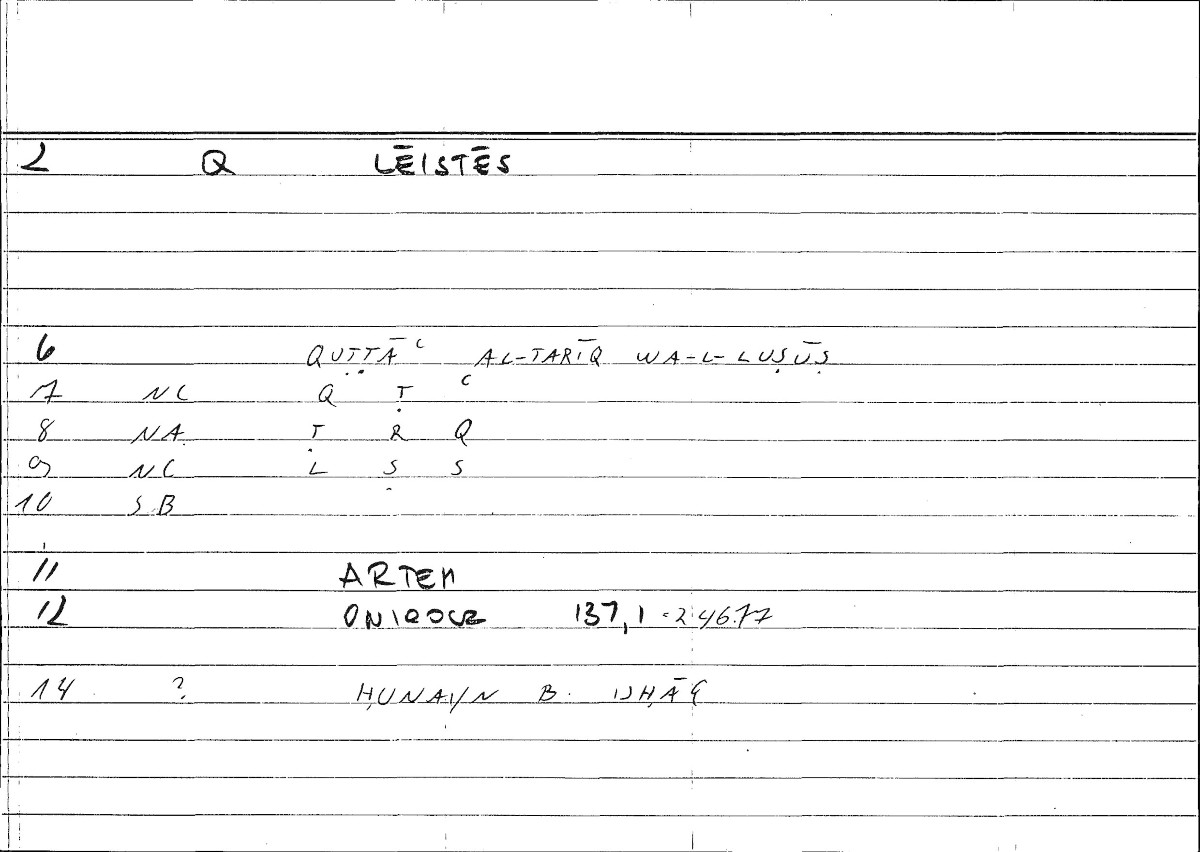 2 Q LĒISTĒS
6 QUṬṬĀʿ AL-TARĪQ WA-L-LUṢŪṢ
7 NC Q Ṭ ʿ
8 NA Ṭ R Q
9 NC L Ṣ S
10 SB
11 ARTEM
12 ONIROCR 137,1 = 246.17
14 ? ḤUNAYN B. ISḤĀQ